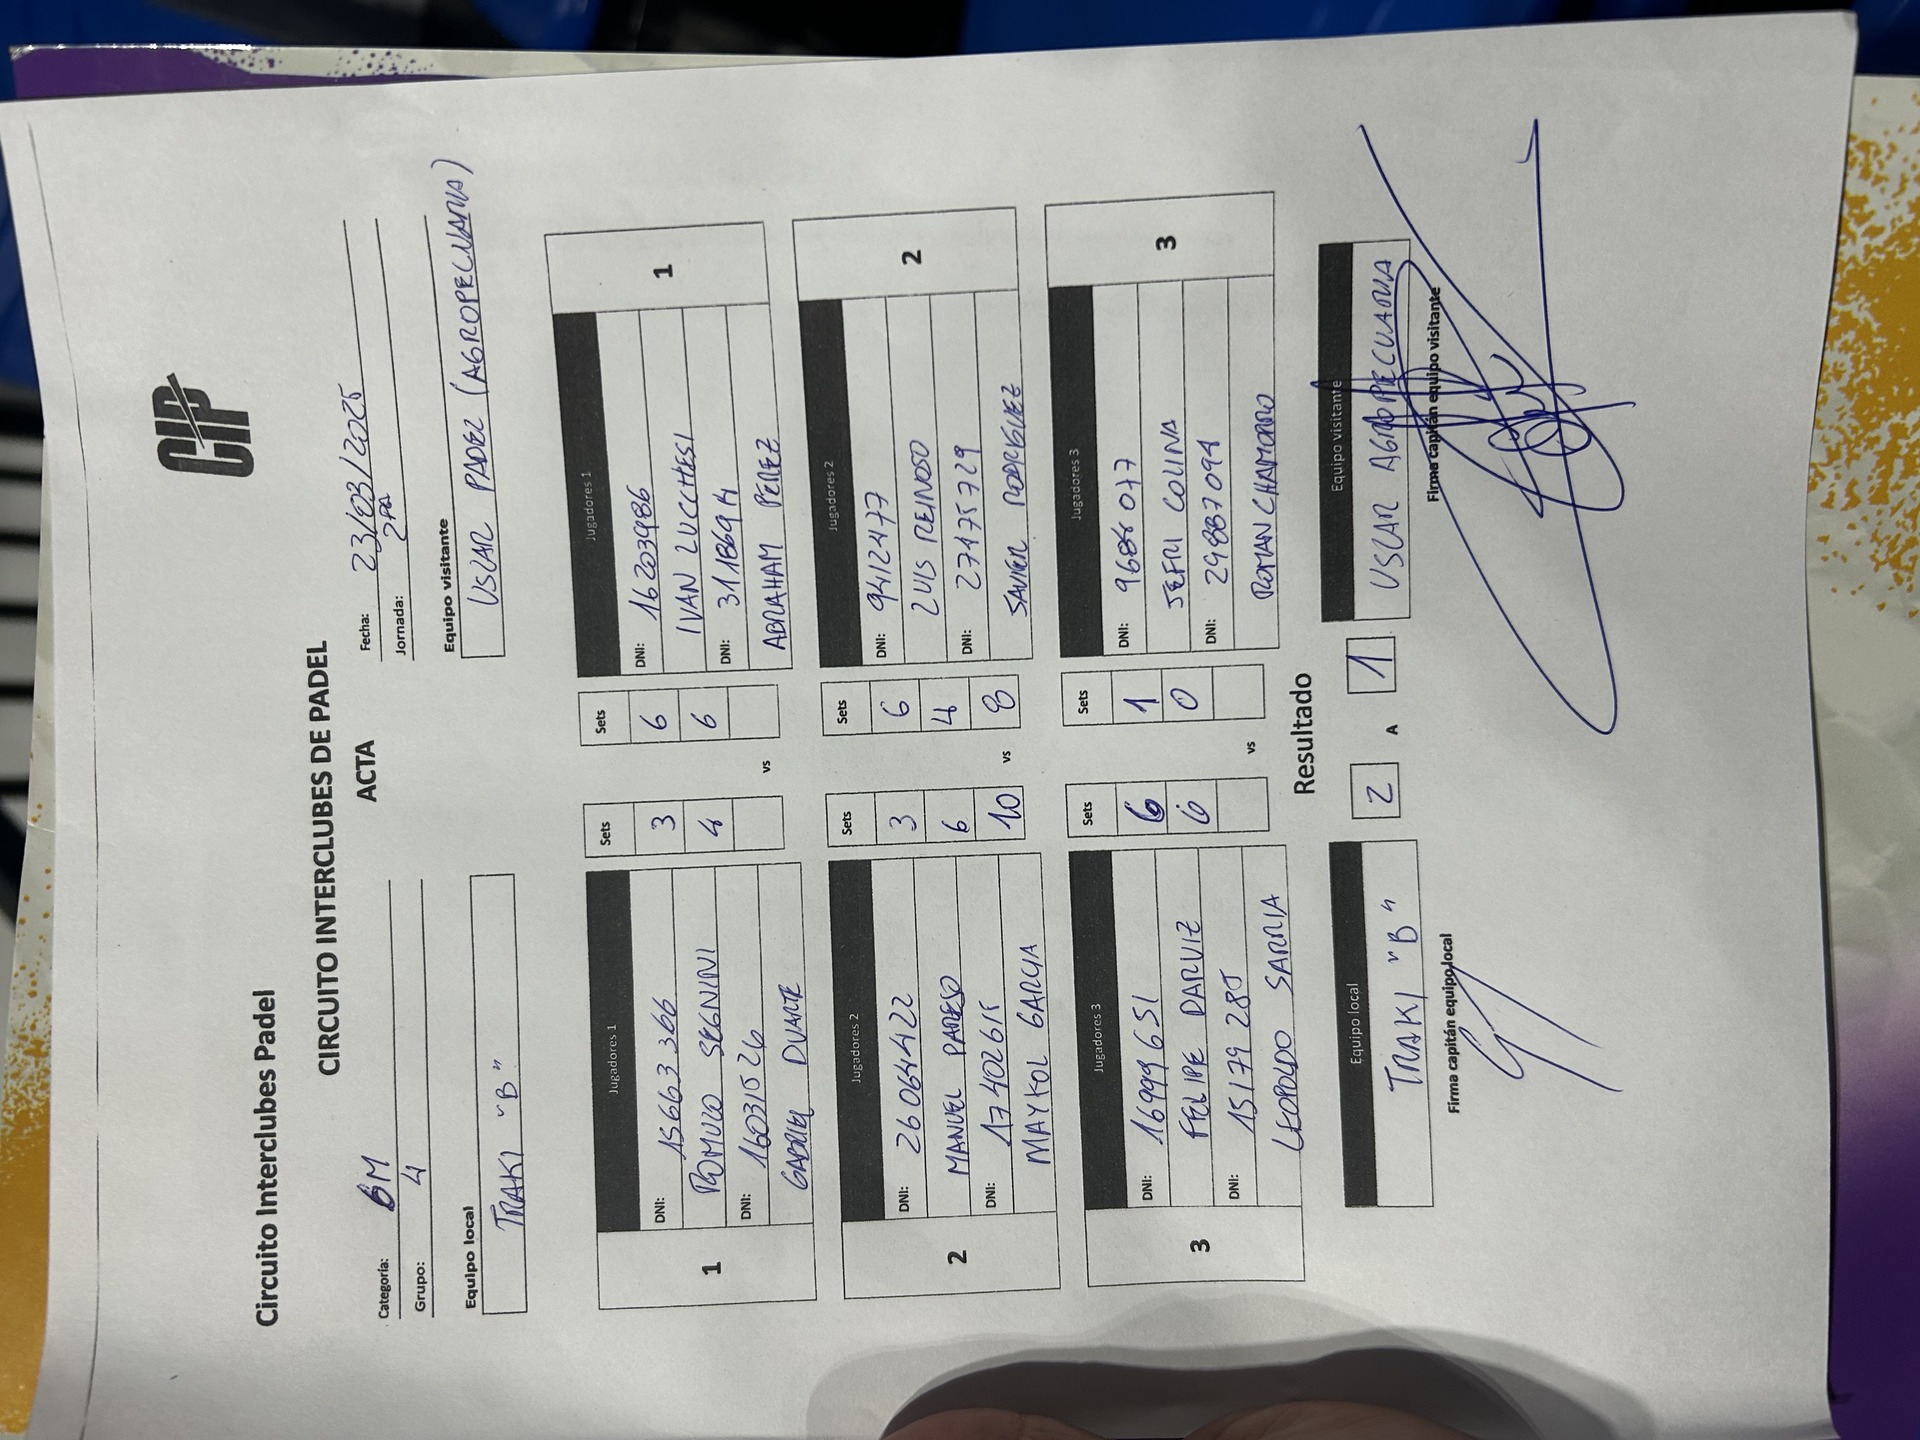 CIP
Circuito Interclubes Padel
CIRCUITO INTERCLUBES DE PADEL
ACTA
Categoría: 6M
Fecha: 23/03/2025
Grupo: 4
Jornada: 2DA
Equipo local
Equipo visitante
TRAKI "B"
USCAR PADEL (AGROPECUARIA)
1
Jugadores 1
Sets
Sets
Jugadores 1
1
DNI: 15663366
3
6
DNI: 16203986
ROMULO SEGNINI
4
6
IVAN LUCCHESI
DNI: 16031526
DNI: 3118694
GABRIEL DUARTE
vs
ABRAHAM PEREZ
2
Jugadores 2
Sets
Sets
Jugadores 2
2
DNI: 26064422
3
6
DNI: 9412477
MANUEL PAREJO
6
4
LUIS REINOSO
DNI: 17402615
10
8
DNI: 27475729
MAYKOL GARCIA
vs
JAVIER RODRIGUEZ
3
Jugadores 3
Sets
Sets
Jugadores 3
3
DNI: 16999651
6
1
DNI: 9686077
FELIPE DARUIZ
6
0
JEFRI COLINA
DNI: 15179285
DNI: 29887094
LEOPOLDO SARRIA
vs
ROMAN CHAMORRO
Resultado
Equipo local
Equipo visitante
TRAKI "B"
2
A
1
USCAR AGROPECUARIA
Firma capitán equipo local
Firma capitán equipo visitante